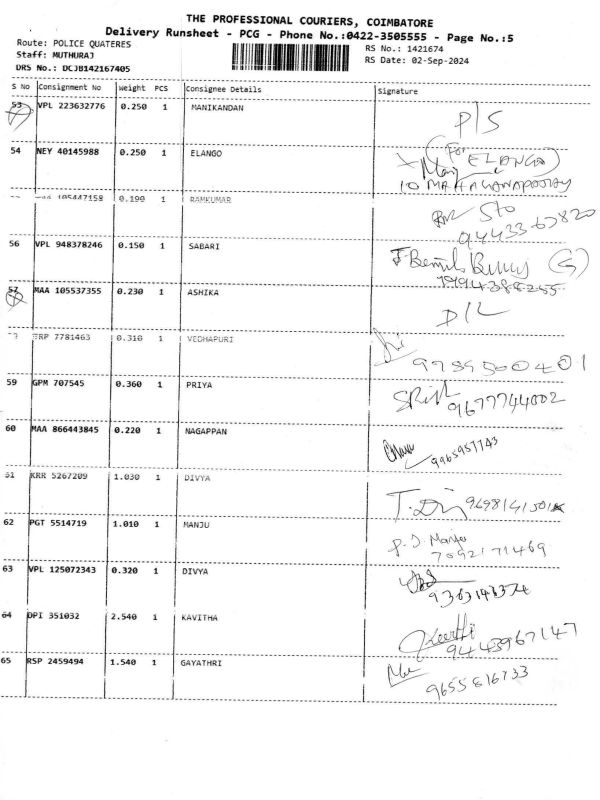 THE PROFESSIONAL COURIERS, COIMBATORE
Delivery Runsheet - PCG - Phone No.:0422-3505555 - Page No.:5
Route: POLICE QUATERES
RS No.: 1421674
Staff: MUTHURAJ
RS Date: 02-Sep-2024
DRS No.: DCJB142167405
S No Consignment No Weight PCS Consignee Details Signature
53 VPL 223632776 0.250 1 MANIKANDAN P/S
54 NEY 40145988 0.250 1 ELANGO (For ELANGO)
105447158 0.190 1 RAMKUMAR
56 VPL 948378246 0.150 1 SABARI
57 MAA 105537355 0.230 1 ASHIKA D/L
7781463 0.310 1 VEDHAPURI
9789500401
59 GPM 707545 0.360 1 PRIYA
9677744002
60 MAA 866443845 0.220 1 NAGAPPAN
9965957743
61 KRR 5267209 1.030 1 DIVYA
62 PGT 5514719 1.010 1 MANJU
Manju
7092171469
63 VPL 125072343 0.320 1 DIVYA
64 DPI 351032 2.540 1 KAVITHA
9443967147
65 RSP 2459494 1.540 1 GAYATHRI
9655816733